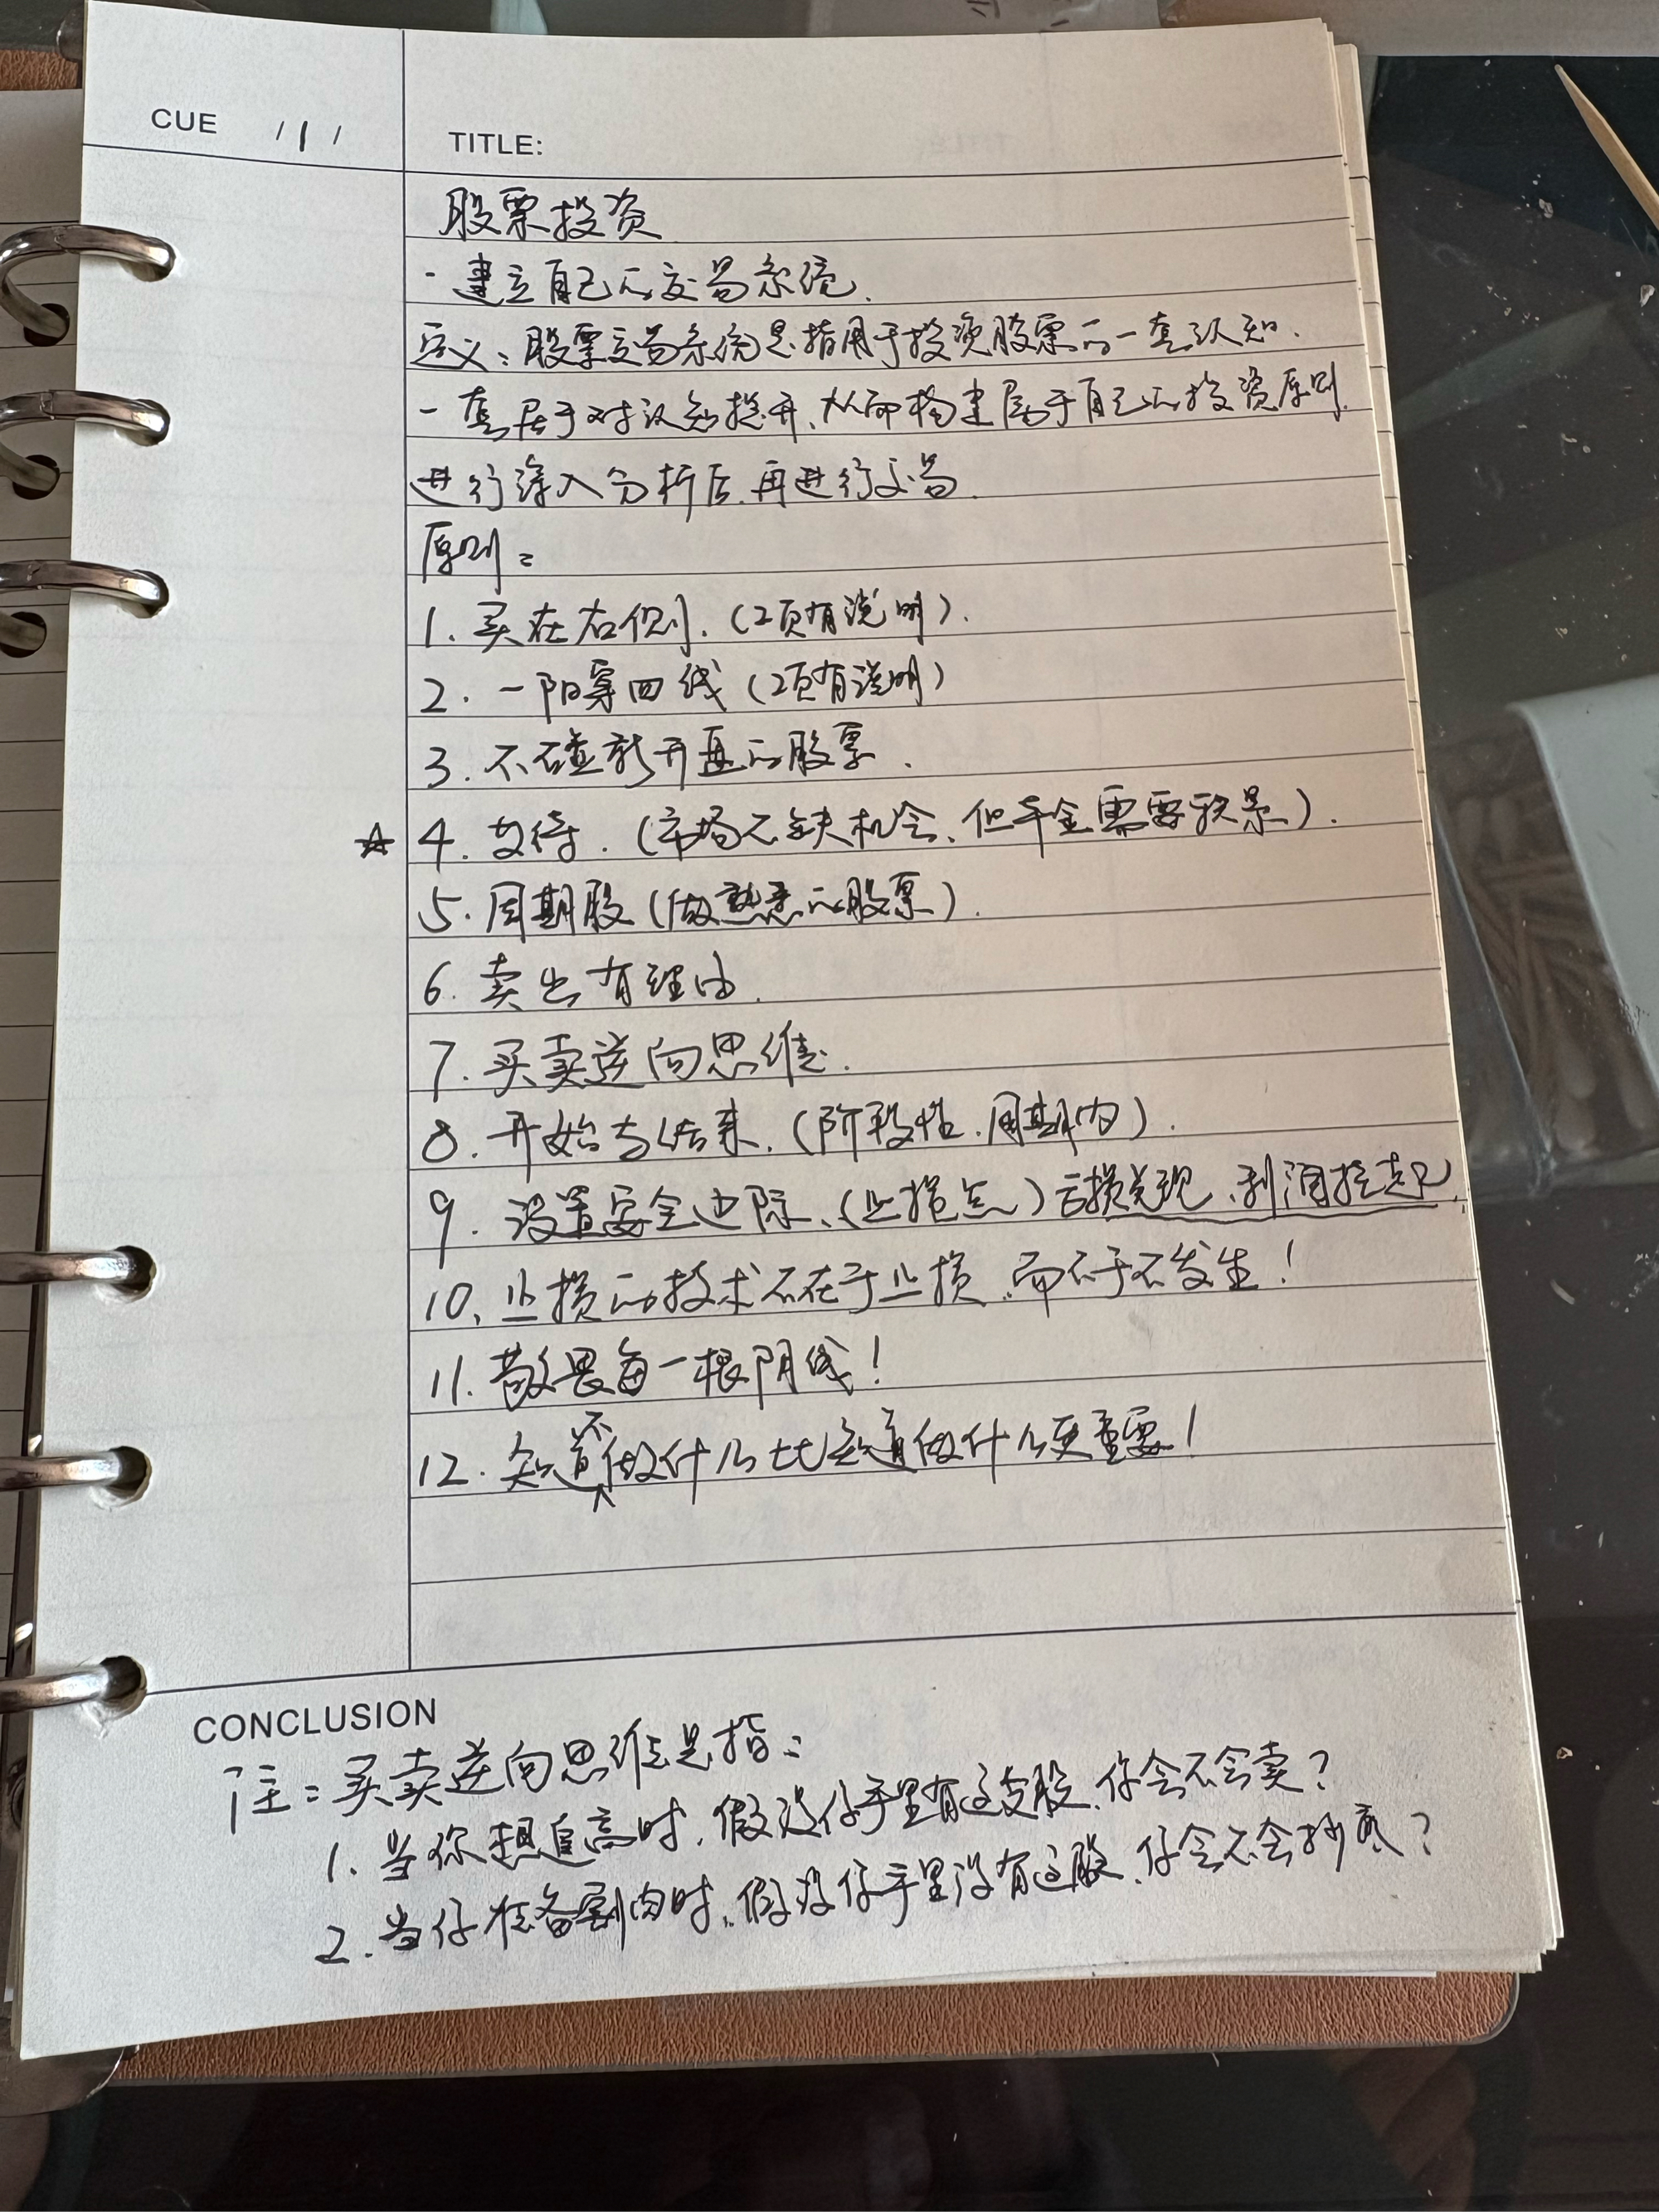 CUE /1/
TITLE:
股票投资
- 建立自己的交易系统.
定义：股票交易系统是指用于投资股票的一套认知.
一套居于对认知提升、从而构建属于自己的投资原则.
进行深入分析后.再进行交易.
原则：
1. 买在右侧.（2页有说明）.
2. 一阳穿四线（2页有说明）
3. 不碰新开盘的股票.
☆ 4. 等待.（市场不缺机会、但本金需要积累）.
5. 周期股（做熟悉的股票）.
6. 卖出有理由.
7. 买卖逆向思维.
8. 开始与结束.（阶段性.周期内）.
9. 设置安全边际、（止损点）亏损兑现、利润拴起.
10、止损的技术不在于止损.而不于不发生！
11. 敬畏每一根阴线！
12. 知道不做什么比知道做什么更重要！
CONCLUSION
注：买卖逆向思维是指：
1. 当你想追高时.假设你手里有这支股.你会不会卖？
2. 当你准备割肉时.假设你手里没有这股.你会不会抄底？